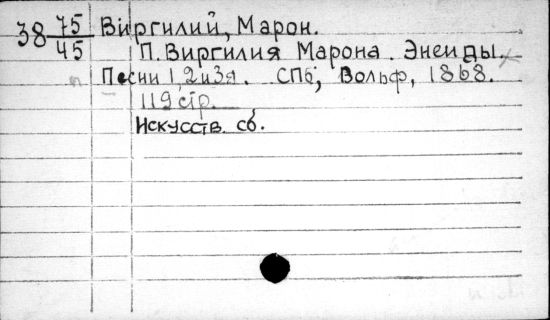 38 75/45 Виргилий, Марон.
П. Виргилия Марона Энеиды
Песни 1, 2 и 3я. СПб, Вольф, 1868.
119 стр.
Искусств. сб.